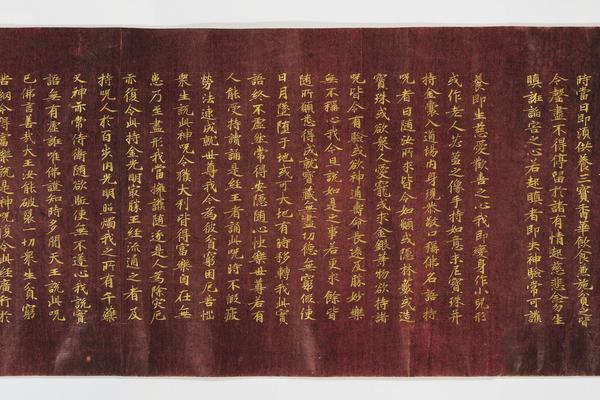 時當日即須供養三寶香華飲食兼施貧乏皆
令罄盡不得停留於諸有情起慈悲念勿生
瞋誑諂害之心若起瞋者即失神驗常可護
養即生慈愛歡喜之心我即變身作小兒形
或作老人苾芻之像手持如意末尼寶珠并
持金囊入道場內身現恭敬口稱佛名語持
呪者曰隨汝所求皆令如願或隱林藪或造
寶珠或欲衆人愛寵或求金銀等物欲持諸
呪皆令有驗或欲神通壽命長遠及勝妙樂
無不稱心我今且說如是之事若更求餘皆
隨所願悉得成就寶藏無盡功德無窮假使
日月墜墮于地或可大地有時移轉我此實
語終不虛然常得安隱隨心快樂世尊若有
人能受持讀誦是經王者誦此呪時不假疲
勞法速成就世尊我今為彼貧窮困厄苦惱
衆生說此神呪令獲大利皆得富樂自在無
患乃至盡形我當擁護隨逐是人為除災厄
亦復令此持金光明最勝王經流通之者及
持呪人於百步內光明照燭我之所有千藥
叉神亦常侍衛隨欲驅使無不遂心我說實
語無有虛誑唯佛證知時多聞天王說此呪
已佛言善哉天王汝能破裂一切衆生貧窮
苦網令得富樂說是神呪復令此經廣行於